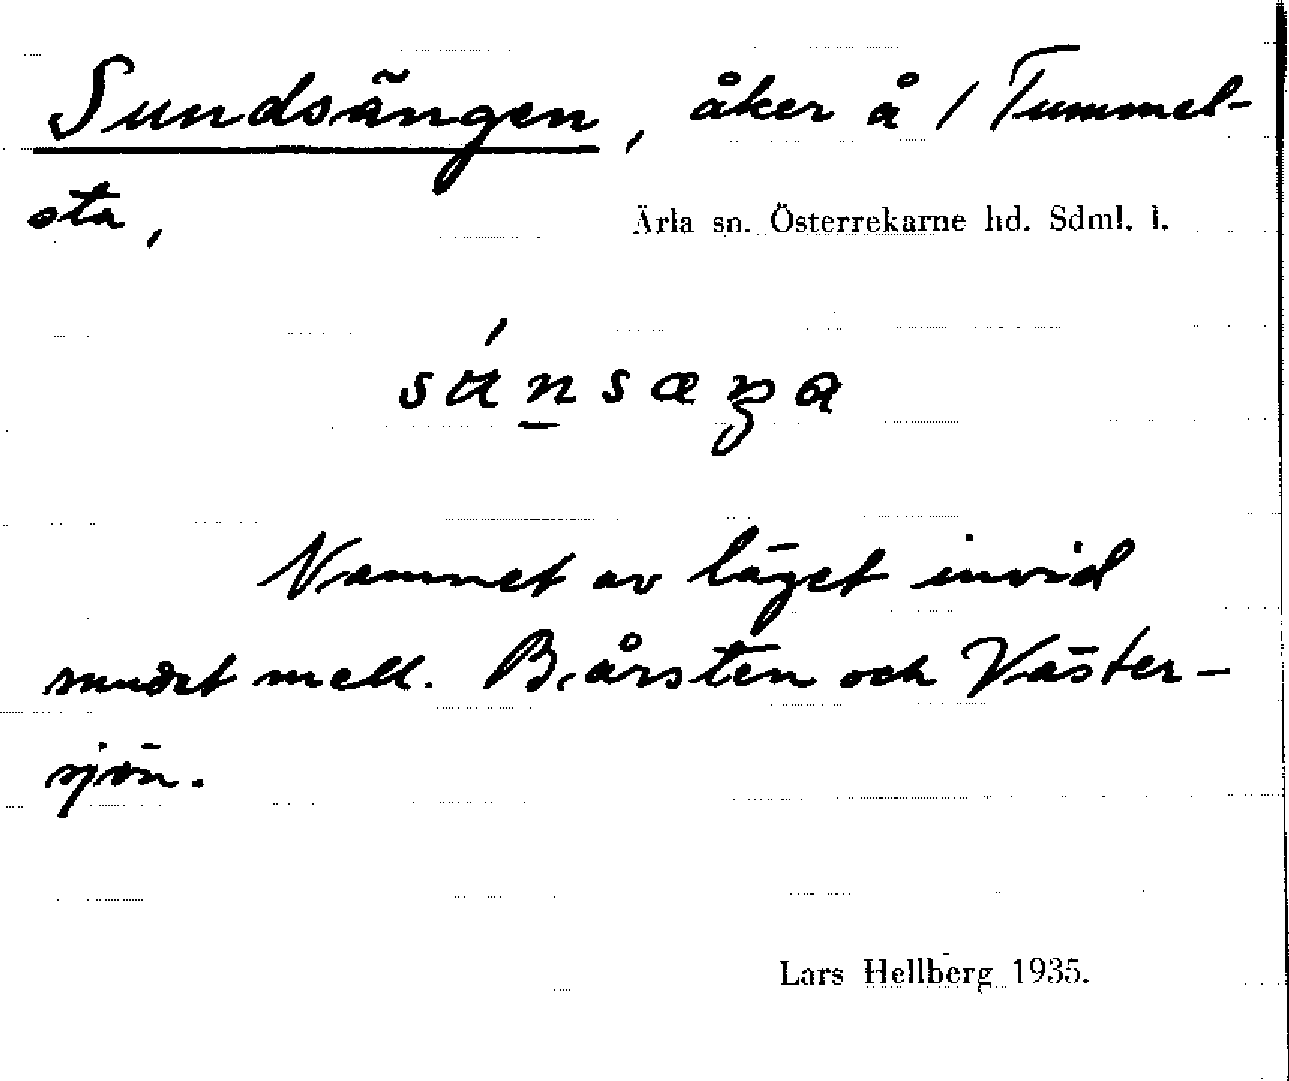 Sundsängen, åker å / Tummel-
sta,
Ärla sn. Österrekarne hd. Sdml. l.
Namnet av läget invid
sundet mell. Bårsten och Väster-
sjön.
Lars Hellberg 1935.